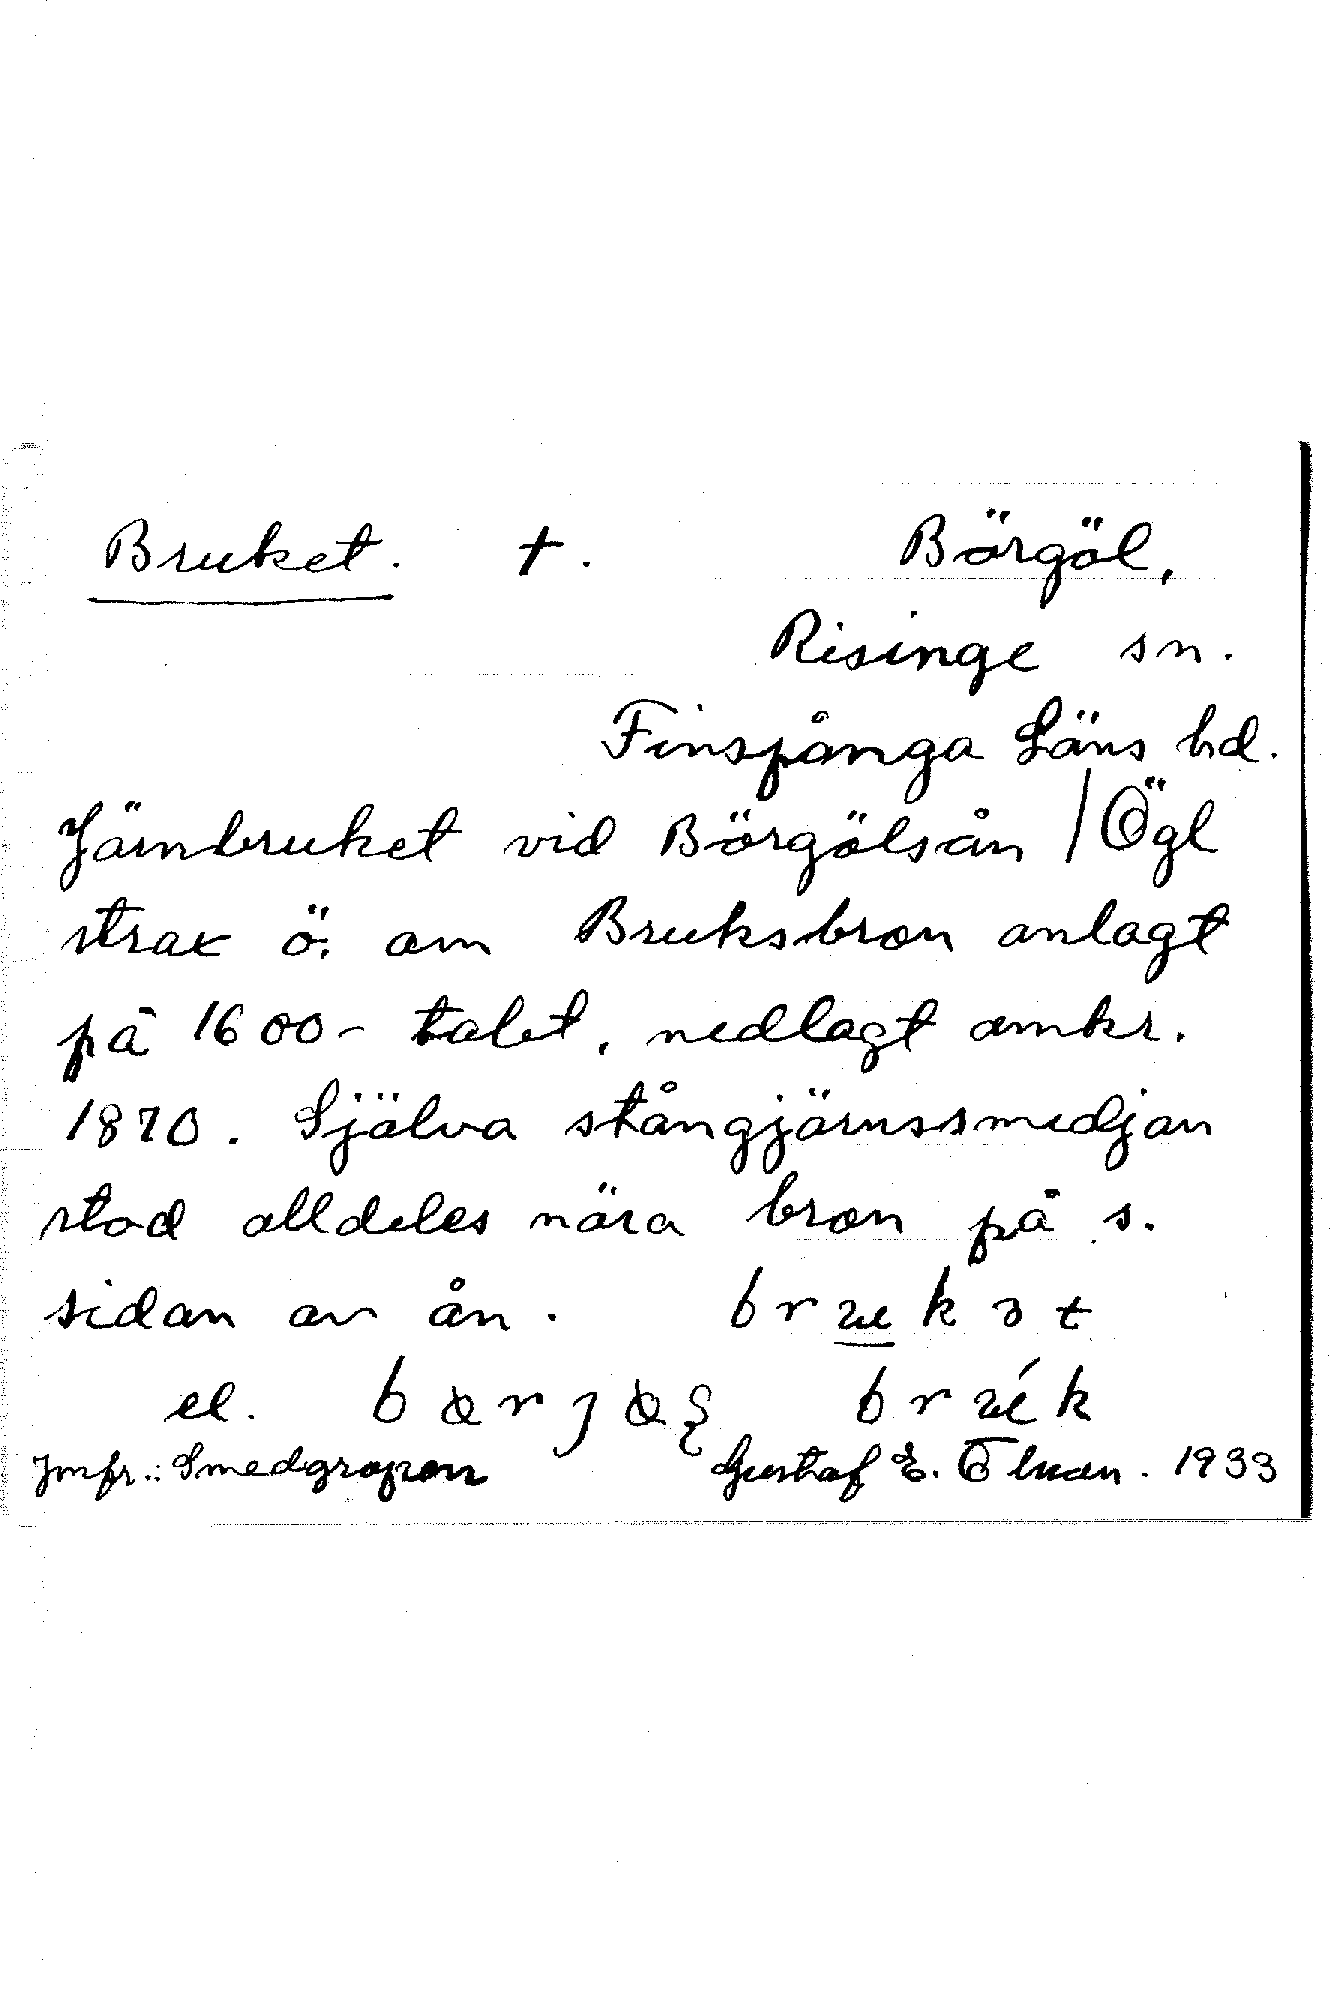 Bruket. †. Börgöl,
Risinge sn.
Finspånga Läns hd.
Järnbruket vid Börgölsån / Ögl
strax ö. om Bruksbron anlagt
på 1600-talet, nedlagt omkr.
1870. Själva stångjärnssmedjan
stod alldeles nära bron på s.
sidan av ån. brukət
el.
Jmfr.: Smedgropen Gustaf E. 1933